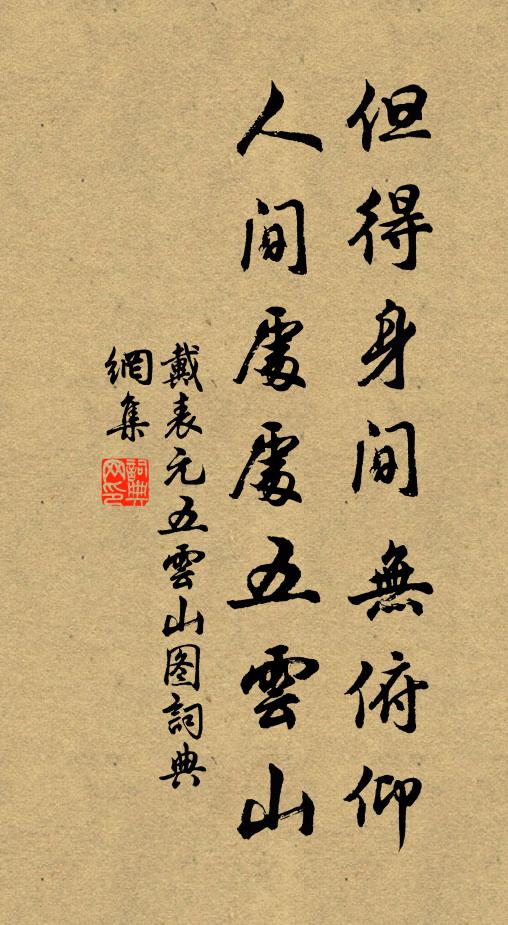 但得身间無俯仰
人间處處五雲山
戴表元五雲山图詞典
網集
詞典
网印